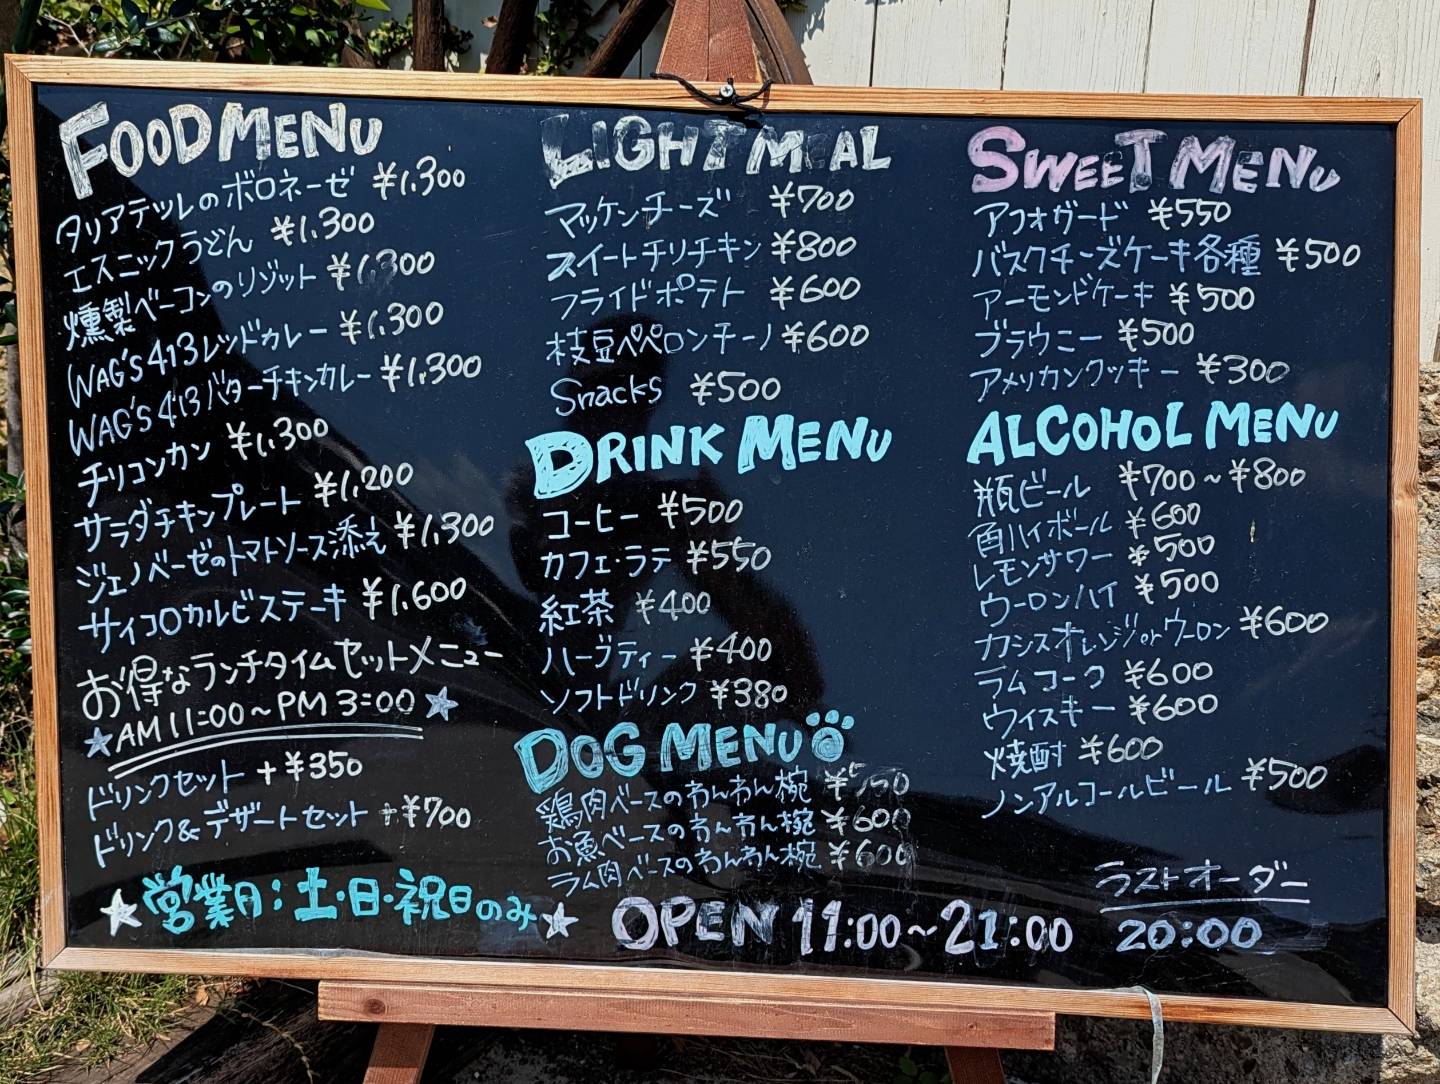 FOOD MENU
タリアテッレのボロネーゼ ¥1,300
エスニックうどん ¥1,300
燻製ベーコンのリゾット ¥1,300
WAG'S 413 レッドカレー ¥1,300
WAG'S 413 バターチキンカレー ¥1,300
チリコンカン ¥1,300
サラダチキンプレート ¥1,200
ジェノベーゼのトマトソース添え ¥1,300
サイコロカルビステーキ ¥1,600
お得なランチタイムセットメニュー
★AM 11:00~PM 3:00★
ドリンクセット +¥350
ドリンク&デザートセット +¥700
★営業日:土・日・祝日のみ★
LIGHT MEAL
マッケンチーズ ¥700
スイートチリチキン ¥800
フライドポテト ¥600
枝豆ペペロンチーノ ¥600
Snacks ¥500
DRINK MENU
コーヒー ¥500
カフェ・ラテ ¥550
紅茶 ¥400
ハーブティー ¥400
ソフトドリンク ¥380
DOG MENU
鶏肉ベースのわんわん椀
お魚ベースのわんわん椀 ¥600
ラム肉ベースのわんわん椀 ¥600
SWEET MENU
アフォガード ¥550
バスクチーズケーキ各種 ¥500
アーモンドケーキ ¥500
ブラウニー ¥500
アメリカンクッキー ¥300
ALCOHOL MENU
瓶ビール ¥700~¥800
角ハイボール ¥600
レモンサワー ¥500
ウーロンハイ ¥500
カシスオレンジorウーロン ¥600
ラムコーク ¥600
ウィスキー ¥600
焼酎 ¥600
ノンアルコールビール ¥500
OPEN 11:00~21:00
ラストオーダー
20:00